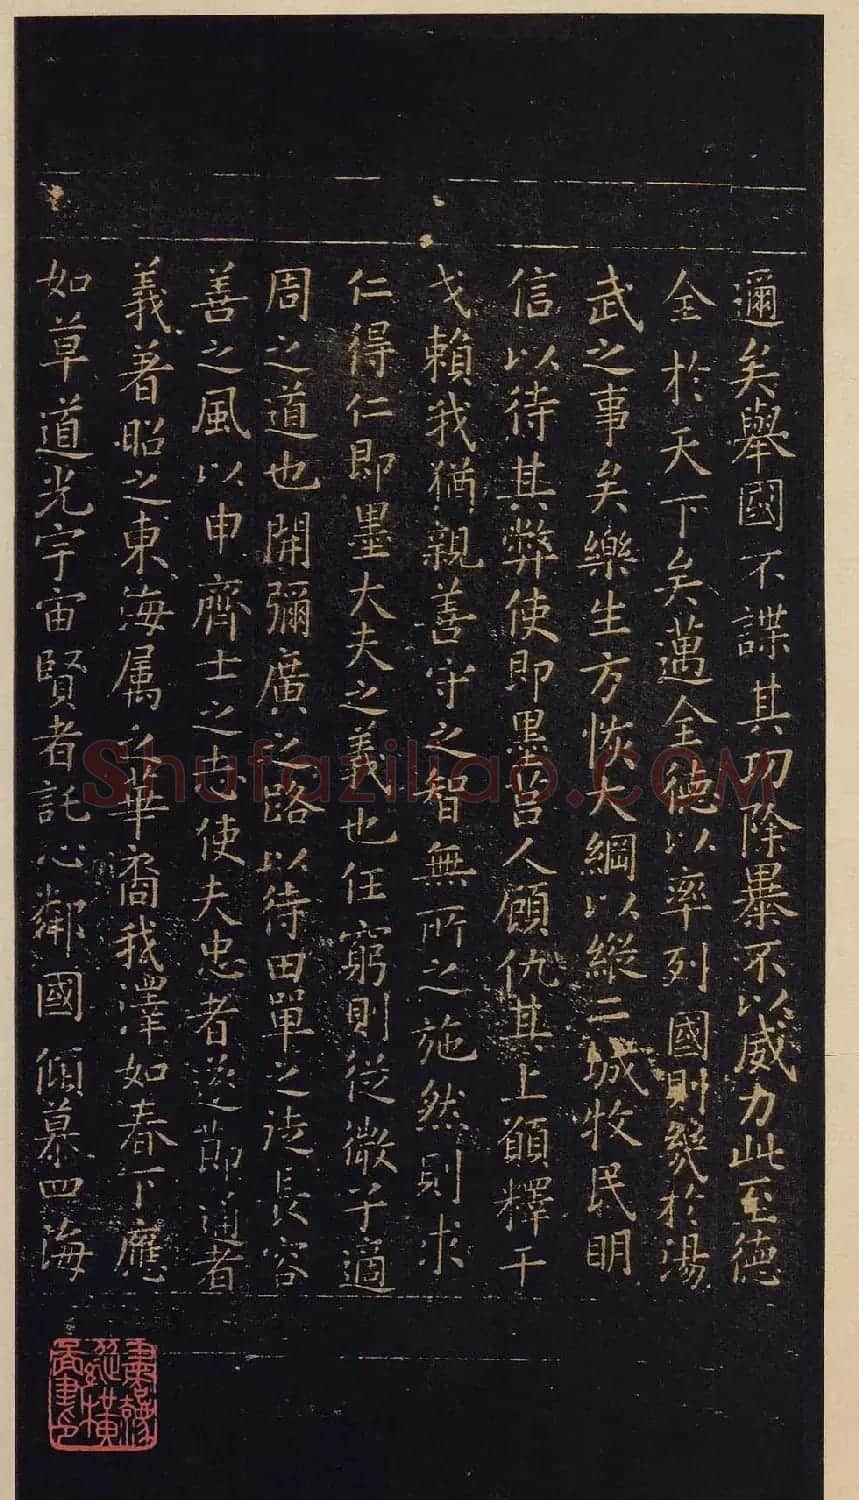 邇矣舉國不謀其功除暴不以威力此至德
全於天下矣邁全德以率列國則幾於湯
武之事矣樂生方恢大綱以縱二城牧民明
信以待其弊使即墨莒人顧仇其上願釋干
戈賴我猶親善守之智無所之施然則求
仁得仁即墨大夫之義也任窮則從微子適
周之道也開彌廣之路以待田單之徒長容
善之風以申齊士之志使夫忠者遂節通者
義著昭之東海属之華裔我澤如春下應
如草道光宇宙賢者託心鄰國傾慕四海
Shufaziliao.COM